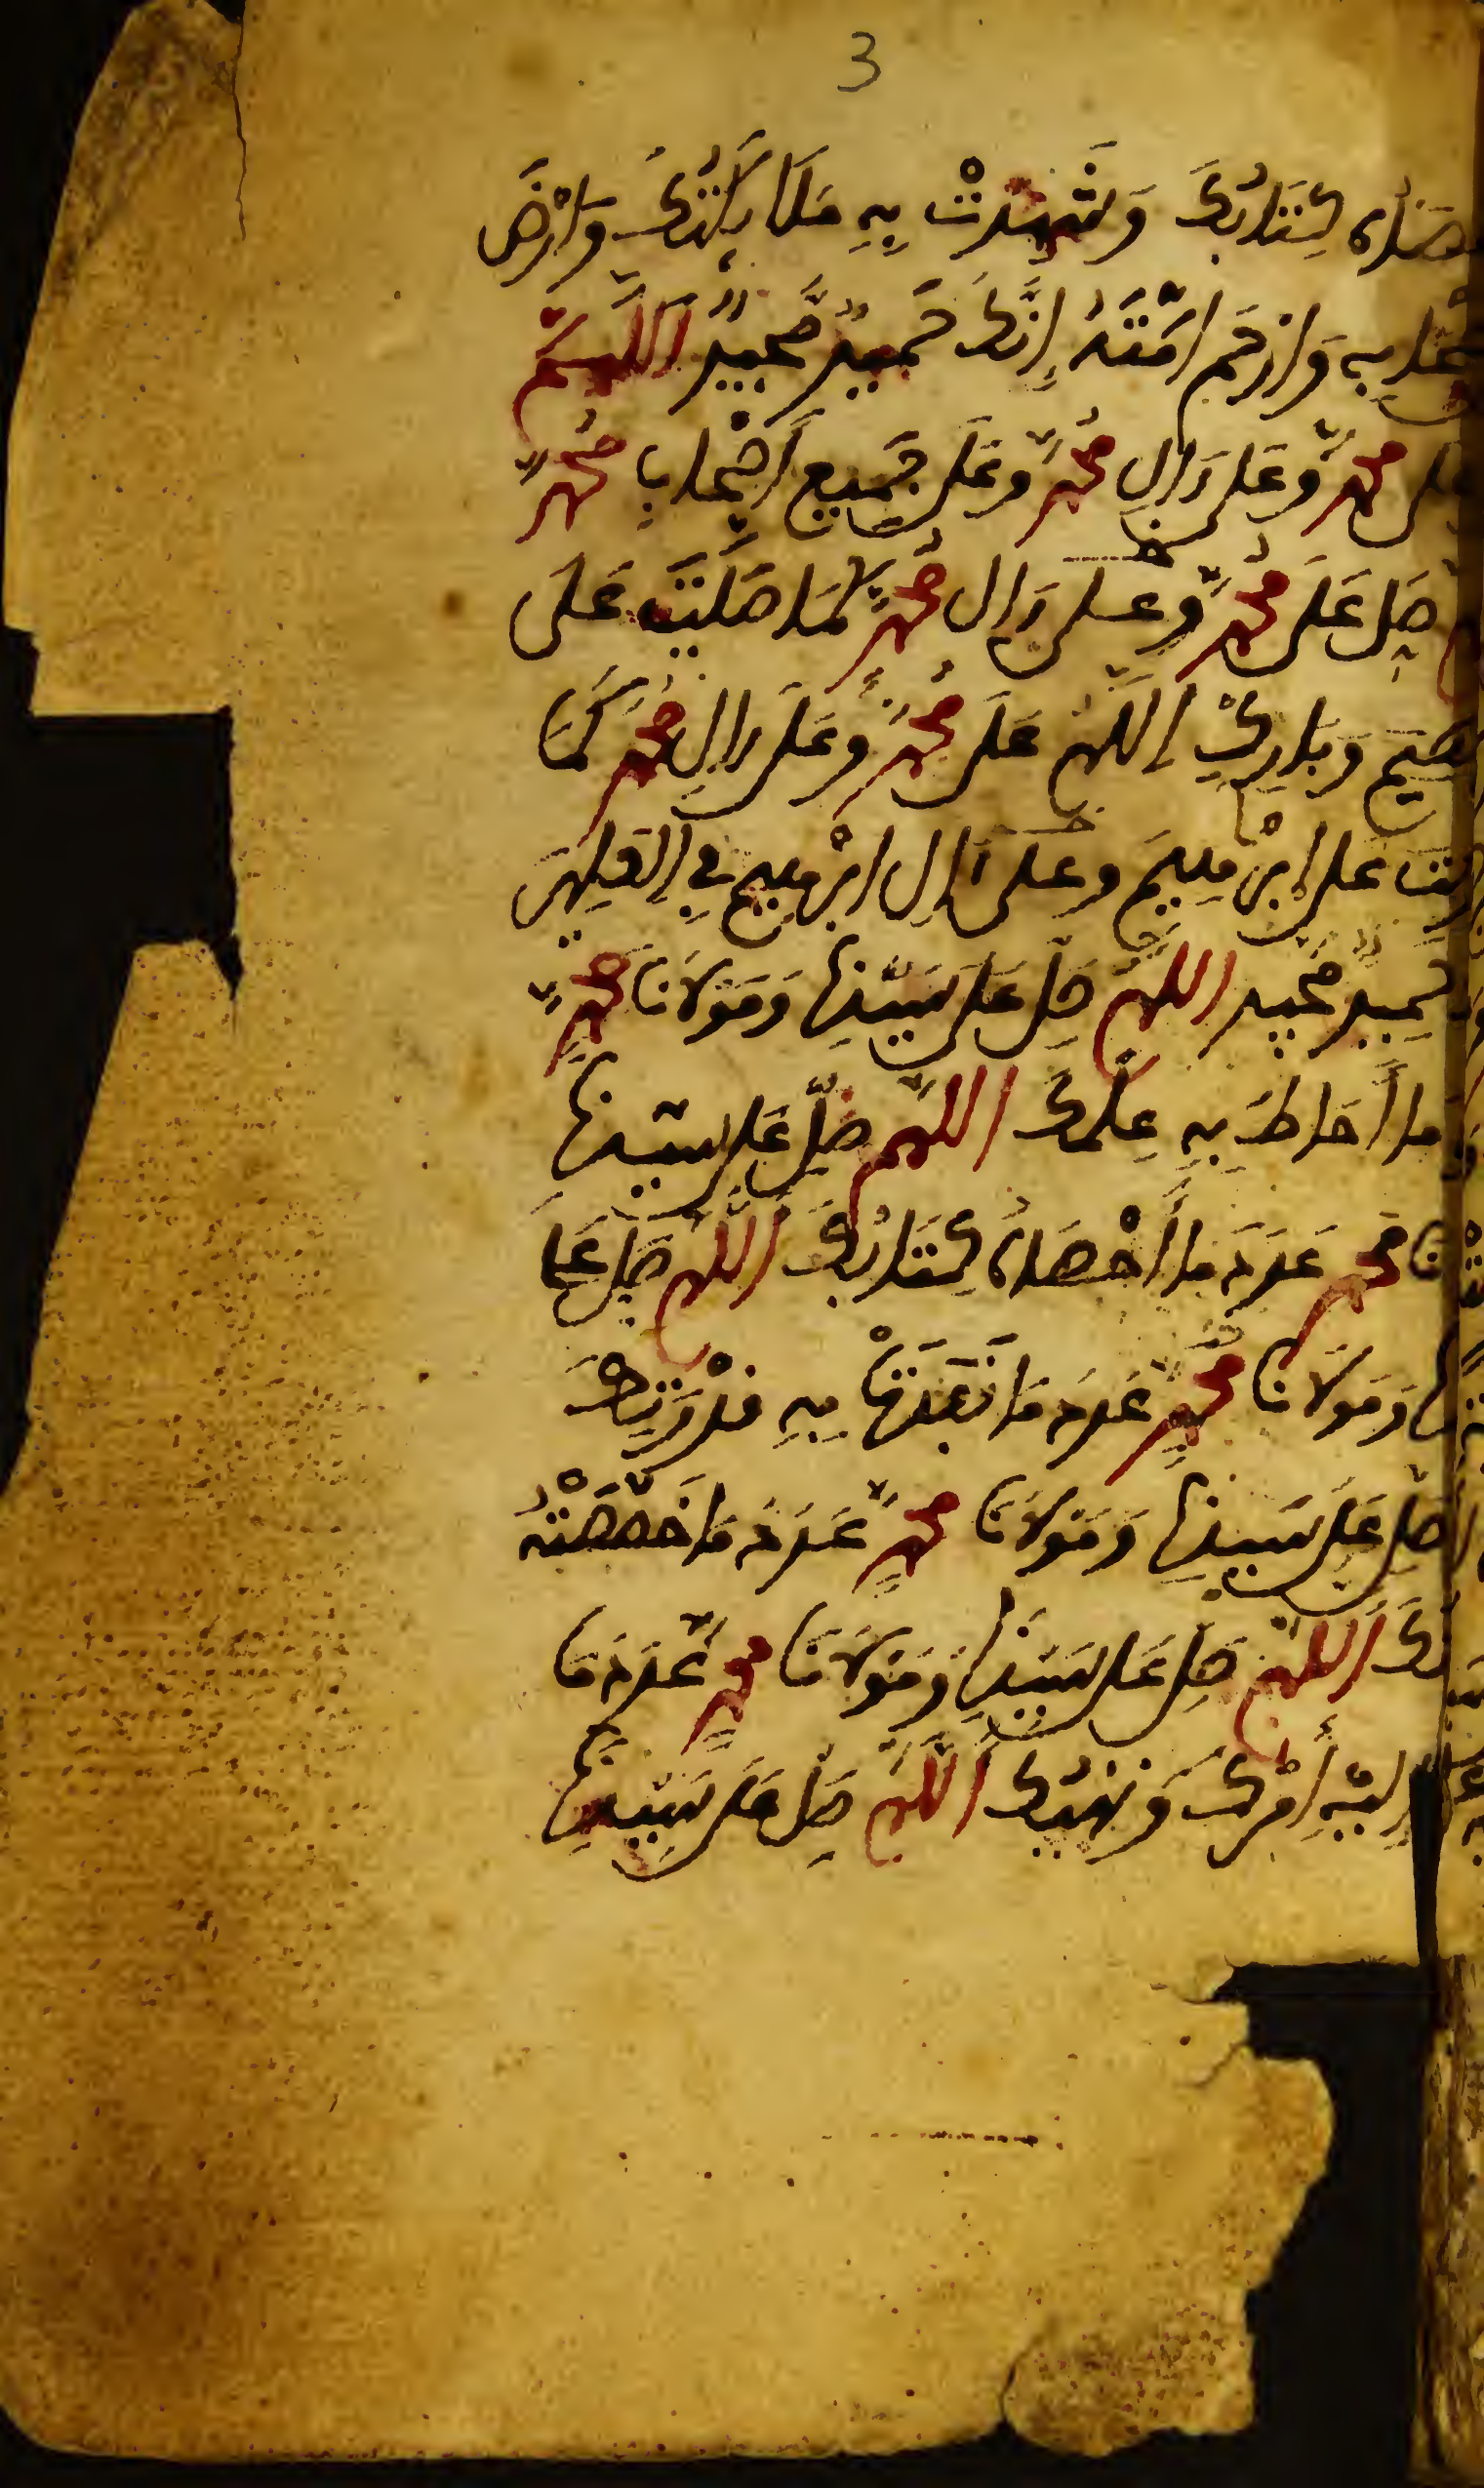 3
كِتَابُكَ وَشَهِدَتْ بِهِ مَلَائِكَتُكَ وَارْضَ
وَارْحَمْ أُمَّتَهُ إِنَّكَ حَمِيدٌ مَّجِيدٌ اللَّهُمَّ
مُحَمَّدٍ وَعَلَى ءَالِ مُحَمَّدٍ وَعَلَى جَمِيعِ أَصْحَابِ مُحَمَّدٍ
صَلِّ عَلَى مُحَمَّدٍ وَعَلَى ءَالِ مُحَمَّدٍ كَمَا صَلَّيْتَ عَلَى
وَبَارِكْ اللَّهُمَّ عَلَى مُحَمَّدٍ وَعَلَى ءَالِ مُحَمَّدٍ كَمَا
عَلَى إِبْرَهِيمَ وَعَلَى ءَالِ إِبْرَهِيمَ فِي الْعَالَمِينَ
حَمِيدٌ مَّجِيدٌ اللَّهُمَّ صَلِّ عَلَى سَيِّدِنَا وَمَوْلَانَا مُحَمَّدٍ
مَا أَحَاطَ بِهِ عِلْمُكَ اللَّهُمَّ صَلِّ عَلَى سَيِّدِنَا
مُحَمَّدٍ عَدَدَ مَا أَحْصَاهُ كِتَابُكَ اللَّهُمَّ صَلِّ عَلَى
وَمَوْلَانَا مُحَمَّدٍ عَدَدَ مَا نَفَذَتْ بِهِ قُدْرَتُكَ
صَلِّ عَلَى سَيِّدِنَا وَمَوْلَانَا مُحَمَّدٍ عَدَدَ مَا خَصَّصَتْهُ
اللَّهُمَّ صَلِّ عَلَى سَيِّدِنَا وَمَوْلَانَا مُحَمَّدٍ عَدَدَ مَا
إِلَيْهِ أَمْرُكَ وَنَهْيُكَ اللَّهُمَّ صَلِّ عَلَى سَيِّدِنَا